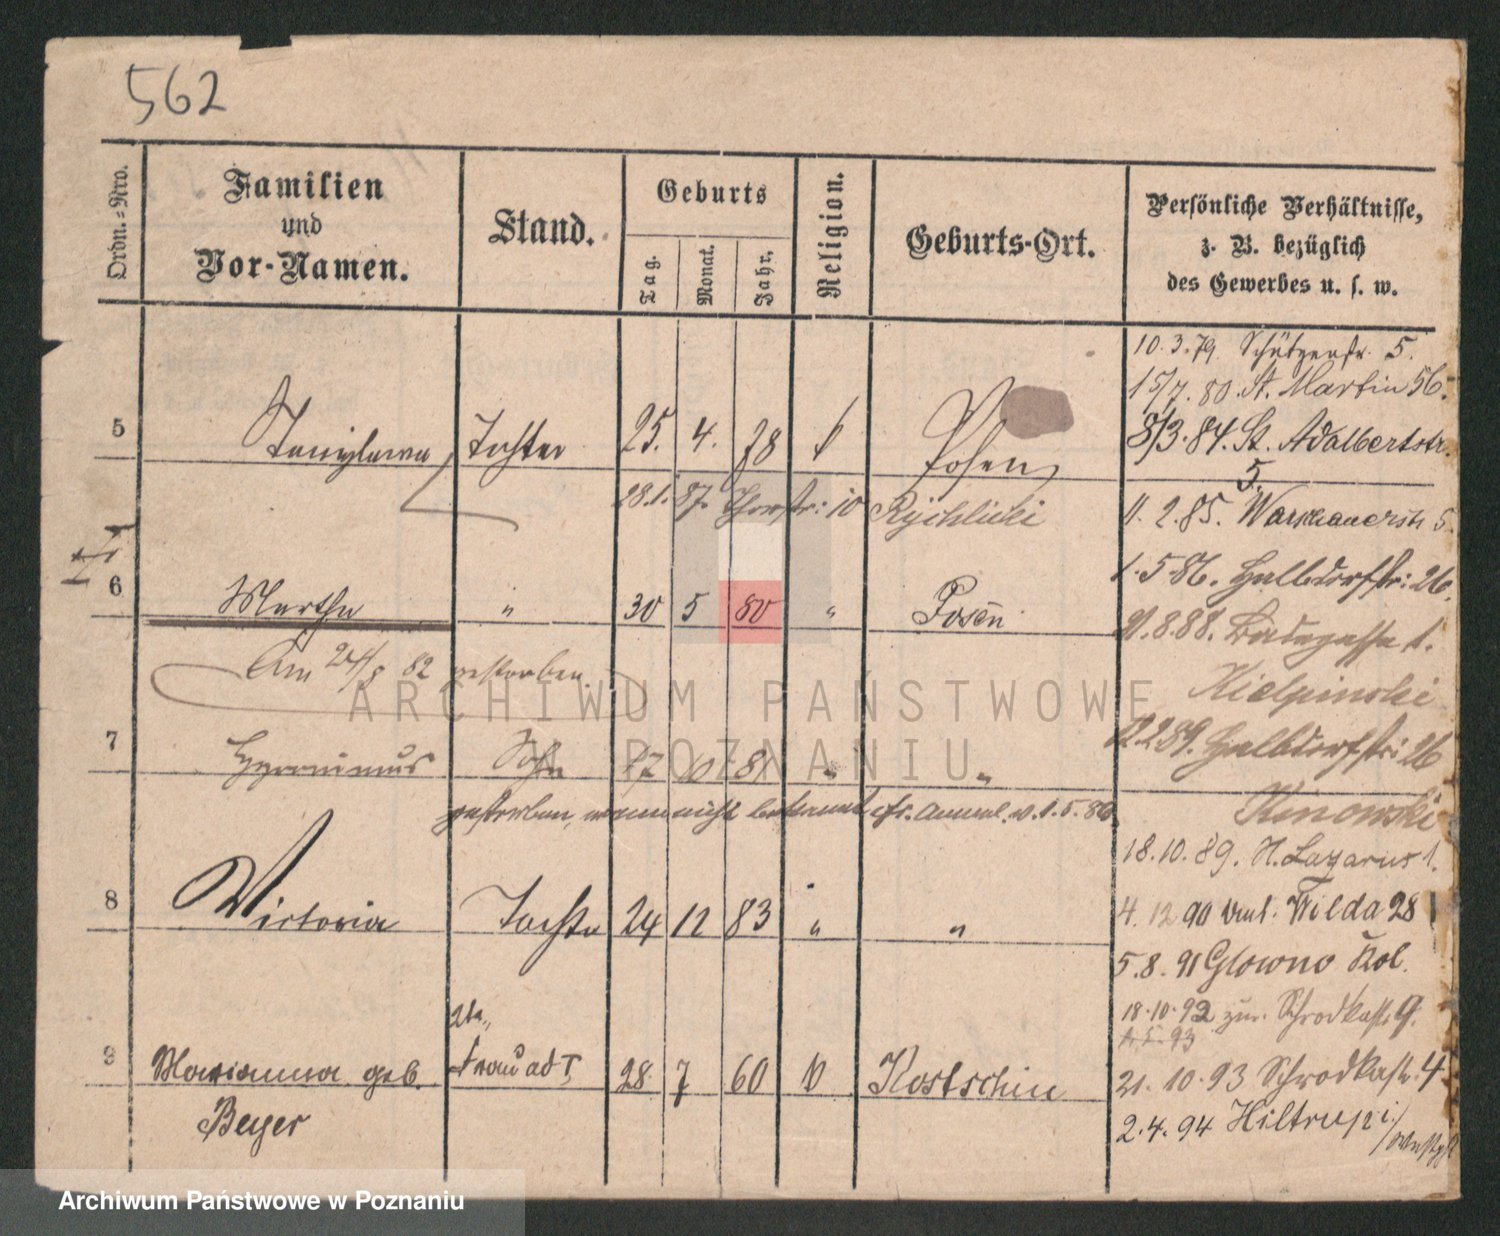 562
Ordn.=Nro.
Familien
und
Vor-Namen.
Stand.
Geburts
Tag.
Monat.
Jahr.
Religion.
Geburts-Ort.
Persönliche Verhältnisse,
z. B. bezüglich
des Gewerbes u. s. w.
10.3.79. Schützenstr. 5.
15/7.80. St. Martin 56.
8/3.84. St. Adalbertstr.
5.
5 Stanislawa Tochter 25. 4. 78 Posen
28.1.87. Thorstr: 10 Rychlicki
11.2.85. Warschauerstr 5.
1.5.86. Halbdorfstr: 26.
6 Martha " 30 5 80 " Posen
21.8.88. Badegasse 1.
Am 24/8 82 gestorben.
Kielpinski
7 Hyronimus Sohn 17 10 81 " "
12.2.89. Halbdorfstr: 26
gestorben, wann nicht bekannt cfr. Anmel. v. 1.5.86
Kinowski
18.10.89. St. Lazarus 1.
8 Wictoria Tochter 24 12 83 " "
4.12 90 Unt. Wilda 28
5.8.91 Glowno Kol.
2te,
18.10.92 zur. Schrodkastr. 9.
9 Marianna geb. Frau ad 1, 28. 7 60 Kostschin
21.10.93 Schrodkastr. 4
Beyer
2.4.94 Hiltrup i/
Westf
ARCHIWUM PAŃSTWOWE
W POZNANIU
Archiwum Państwowe w Poznaniu